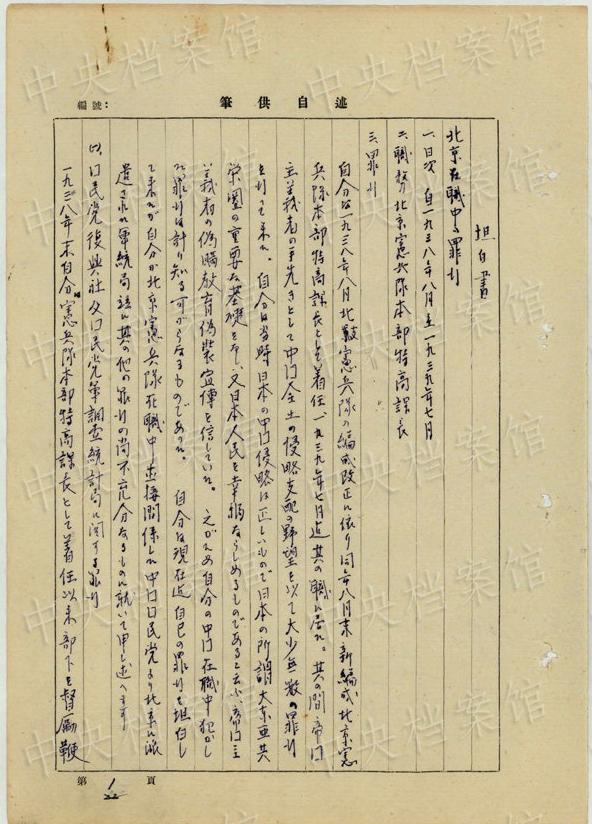 編號:
述自供筆
坦白書
北京在職中ノ罪行
一、日次 自一九三八年八月至一九三九年七月
二、職務 北京憲兵隊本部特高課長
三、罪行
自分は一九三八年八月北支憲兵隊の編成改正に依り同年八月末新編成北京憲
兵隊本部特高課長として着任、一九三九年七月迄其の職に居た。其の間帝国
主義者の手先きとして中国全土の侵略支配の野望を以て大少無数の罪行
を行って来た。自分は当時日本の中国侵略は正しいもので日本の所謂大東亜共
栄圏の重要な基礎をなし、又日本人民を幸福ならしめるものであると云ふ、帝国主
義者の偽瞞教育偽装宣傳を信じていた。之がため自分の中国在職中犯かし
た罪行は計り知る可からざるものであった。自分は現在迄自己の罪行を坦白し
て来たが自分が北京憲兵隊在職中直接関係した中国国民党より北京に派
遣された軍統局並に其の他の罪行の尚不充分なるものに就いて申し述へます
国民党復興社及国民党軍調査統計局に関する罪行
一九三八年末自分は憲兵隊本部特高課長として着任以来部下を督励鞭
第 1 頁
中央档案馆